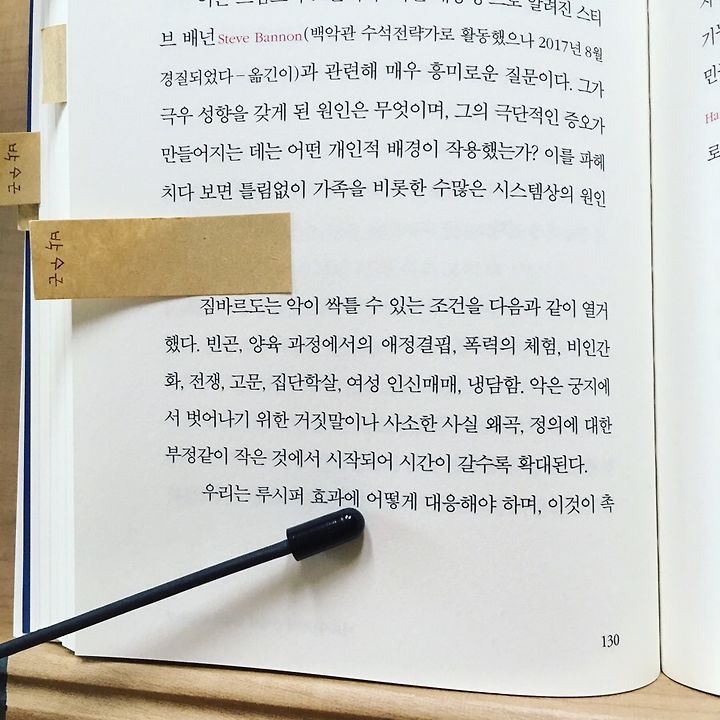 알려진 스티
브 배넌Steve Bannon(백악관 수석전략가로 활동했으나 2017년 8월
경질되었다-옮긴이)과 관련해 매우 흥미로운 질문이다. 그가
극우 성향을 갖게 된 원인은 무엇이며, 그의 극단적인 증오가
만들어지는 데는 어떤 개인적 배경이 작용했는가? 이를 파헤
치다 보면 틀림없이 가족을 비롯한 수많은 시스템상의 원인
짐바르도는 악이 싹틀 수 있는 조건을 다음과 같이 열거
했다. 빈곤, 양육 과정에서의 애정결핍, 폭력의 체험, 비인간
화, 전쟁, 고문, 집단학살, 여성 인신매매, 냉담함. 악은 궁지에
서 벗어나기 위한 거짓말이나 사소한 사실 왜곡, 정의에 대한
부정같이 작은 것에서 시작되어 시간이 갈수록 확대된다.
우리는 루시퍼 효과에 어떻게 대응해야 하며, 이것이 촉
130
박수근
박수근
기
민
Ha
로